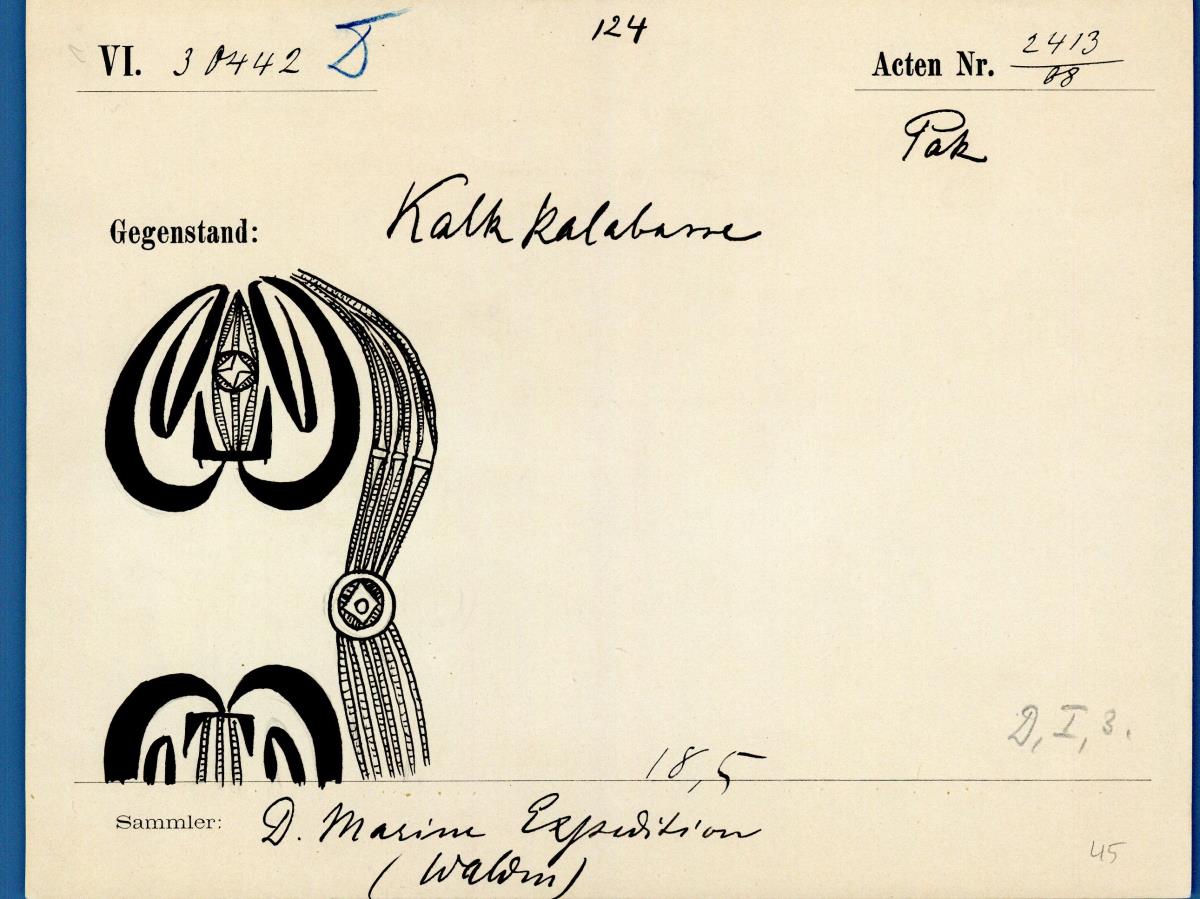 124
VI. 30442 D
Acten Nr. 2413/08
Pak
Gegenstand: Kalk kalabasse
D, I, 3.
18,5
Sammler: D. Marine Expedition
(Walden)
45